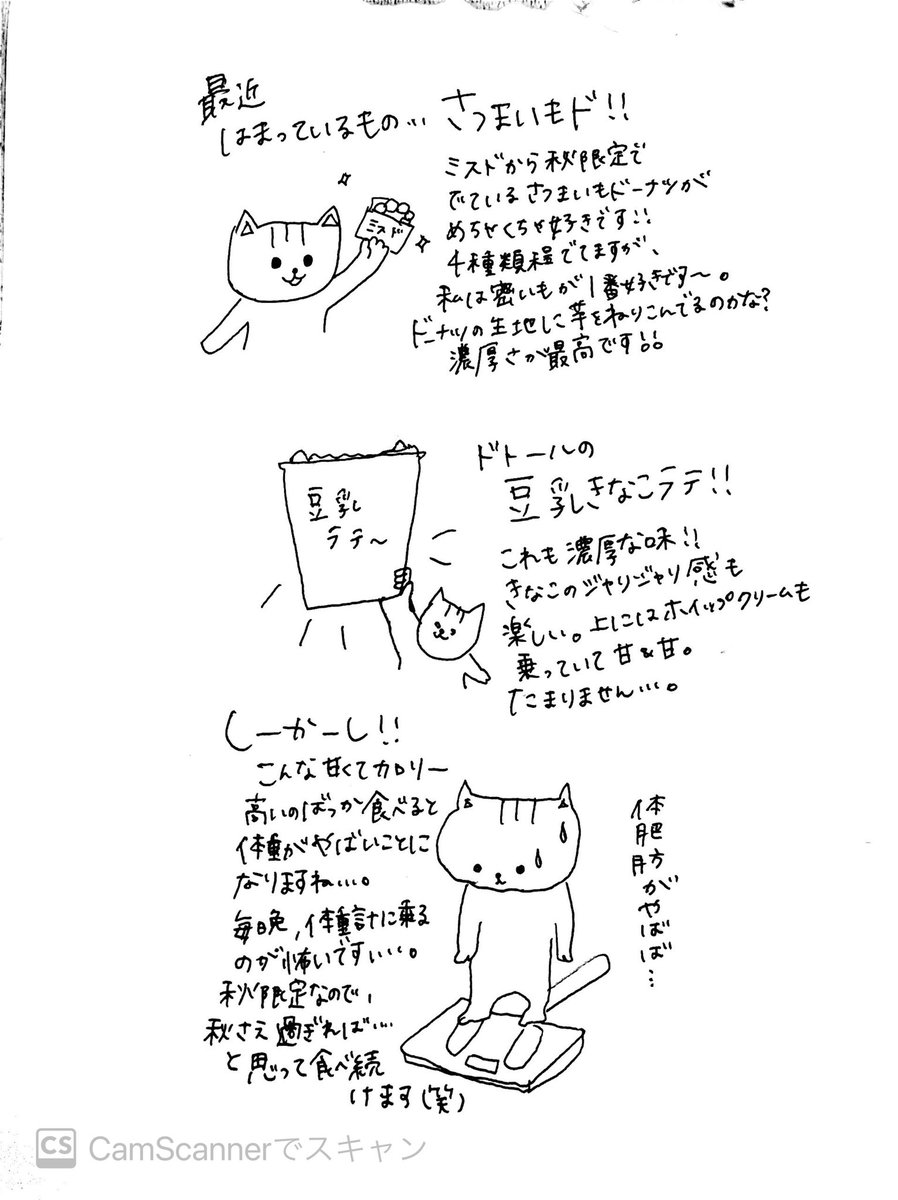 最近
はまっているもの… さつまいもド!!
ミスドから秋限定で
でているさつまいもドーナツが
めちゃくちゃ好きです!!
4種類程でてますが、
私は蜜いもが1番好きです〜。
ドーナツの生地に芋をねりこんでるのかな?
濃厚さが最高です!!
ミスド
ドトールの
豆乳きなこラテ!!
これも濃厚な味!!
きなこのジャリジャリ感も
楽しい。上にはホイップクリームも
乗っていて甘&甘。
たまりません…。
豆乳
ラテ〜
しーかーし!!
こんな甘くてカロリー
高いのばっか食べると
体重がやばいことに
なりますね…。
毎日晩,体重計に乗る
のが怖いですい…。
秋限定なので,
秋さえ過ぎれば…
と思って食べ続
けます(笑)
体脂肪がやばば…
CS CamScannerでスキャン